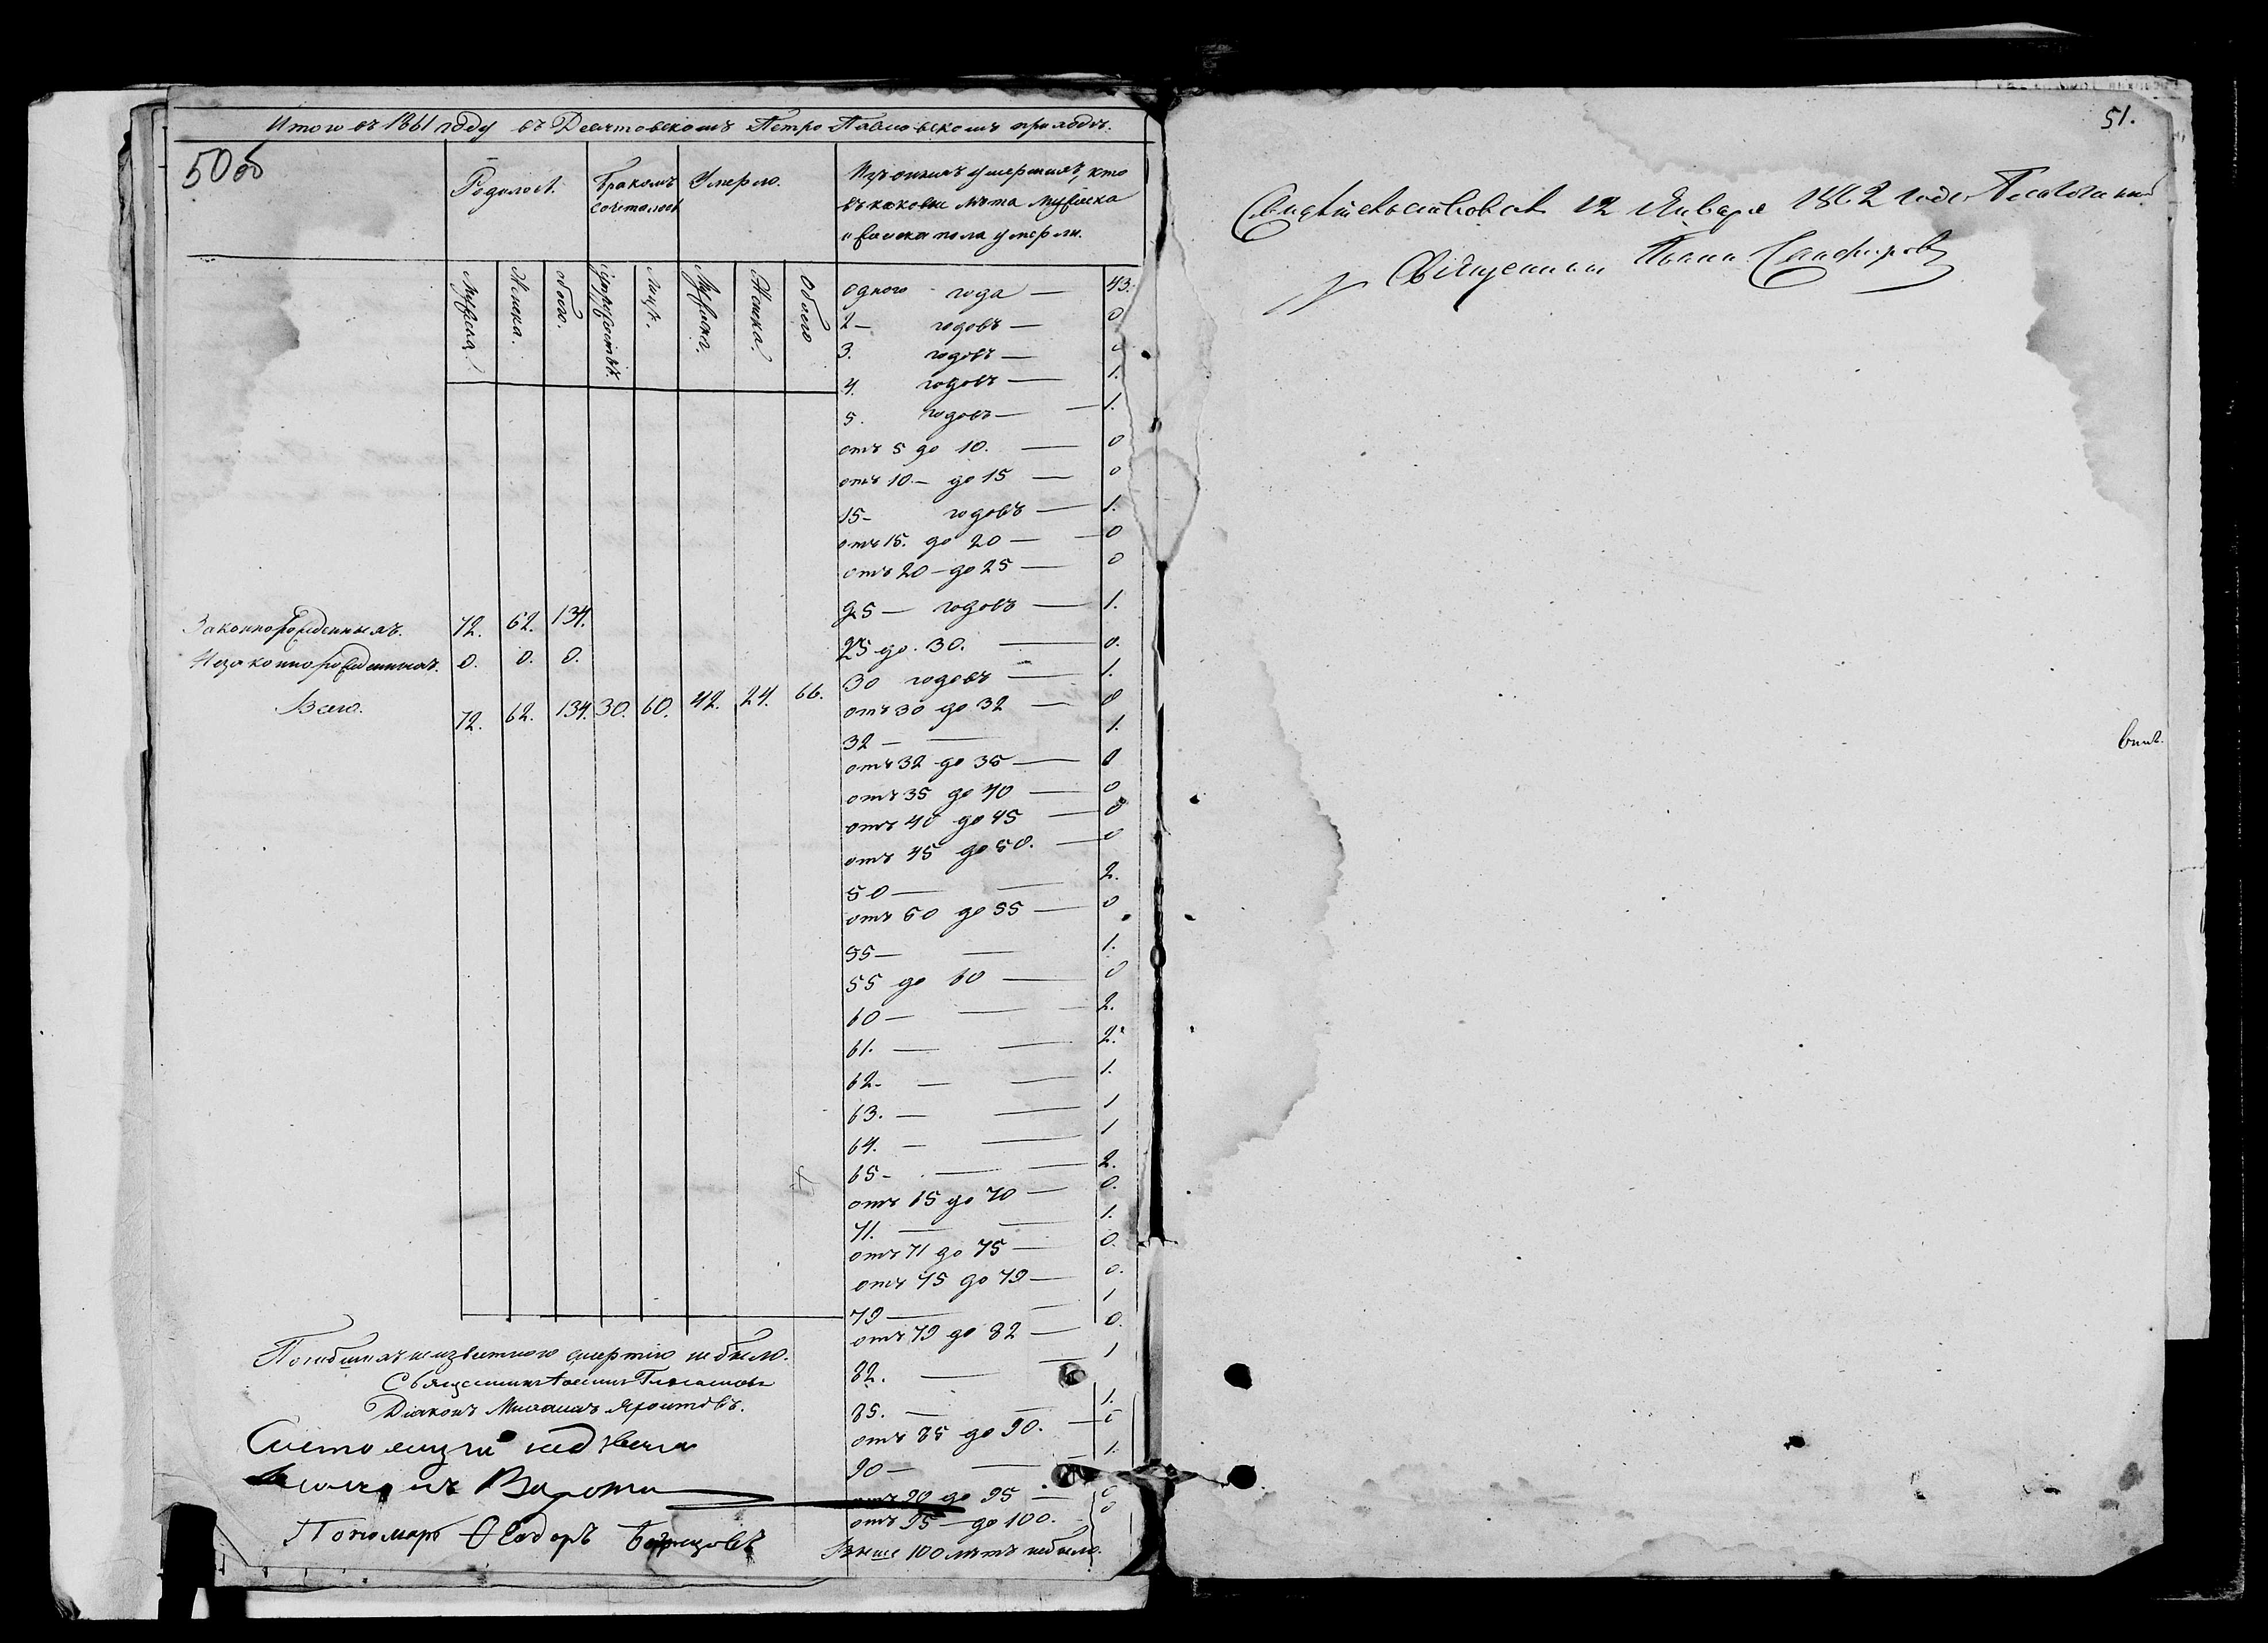 Итого въ 1861 году въ Девятовскомъ Петро Павловскомъ приходѣ.
50 об
Родилось.
Бракомъ
сочеталось
Умерло.
Изъ оныхъ умершихъ, кто
въ каковы лѣта мужеска
и женска пола умерли.
Мужеска
Женска.
обоего.
Супружествъ.
Лицъ.
Мужеска.
Женска.
Обоего
одного года — 43.
2 — годовъ — 0
3. годовъ — 0
4. годовъ — 1.
5. годовъ — 1.
отъ 5 до 10. — 0
отъ 10. — до 15 — 0
15 — годовъ — 1.
отъ 15. до 20 — 0
отъ 20 — до 25 — 0
25 — годовъ — 1.
25 до 30. — 0.
30 годовъ — 1.
отъ 30 до 32 — 0
32 — 1.
отъ 32 до 35 — 0
отъ 35 до 40 — 0
отъ 40 до 45 — 0
отъ 45 до 50. — 0
50 — 2.
отъ 50 до 55 — 0
55 — 1.
55 до 60 — 0
60 — 2.
61. — 2.
62. — 1.
63. — 1
64. — 1
65 — 2.
отъ 65 до 70 — 0.
71. — 1.
отъ 71 до 75 — 0.
отъ 75 до 79 — 0.
79 — 1
отъ 79 до 82 — 0.
82. — 1
85. — 1.
отъ 85 до 90. — 0
90 — 1.
отъ 90 до 95 — 0
отъ 95 — до 100. 0
Выше 100 лѣтъ небыло.
Законнорожденныхъ. 72. 62. 134.
Незаконнорожденныхъ. 0. 0. 0.
Всего. 72. 62. 134. 30. 60. 42. 24. 66.
Погибшихъ неизвестною смертію небыло.
Священникъ
Діаконъ Михаилъ
Пономарь Ѳеодоръ
51.
Свидѣтельствовалъ 12 Января 1862 года Благочинный
Священникъ Іоаннъ Сапфировъ